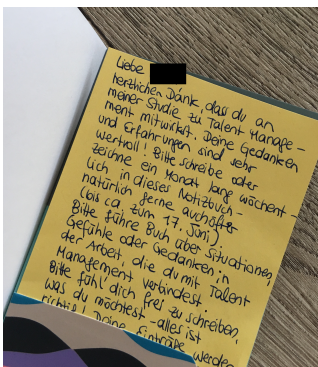 Liebe
herzlichen Dank, dass du an
meiner Studie zu Talent Manage-
ment mitwirkst. Deine Gedanken
und Erfahrungen sind sehr
wertvoll! Bitte schreibe oder
zeichne ein Monat lang wöchent-
lich in dieses Notizbuch -
natürlich gerne auch öfter
(bis ca. zum 17. Juni).
Bitte führe Buch über Situationen,
Gefühle oder Gedanken in
der Arbeit, die du mit Talent
Management verbindest.
Bitte fühl dich frei zu schreiben,
was du möchtest - alles ist
richtig! Deine Einträge werden